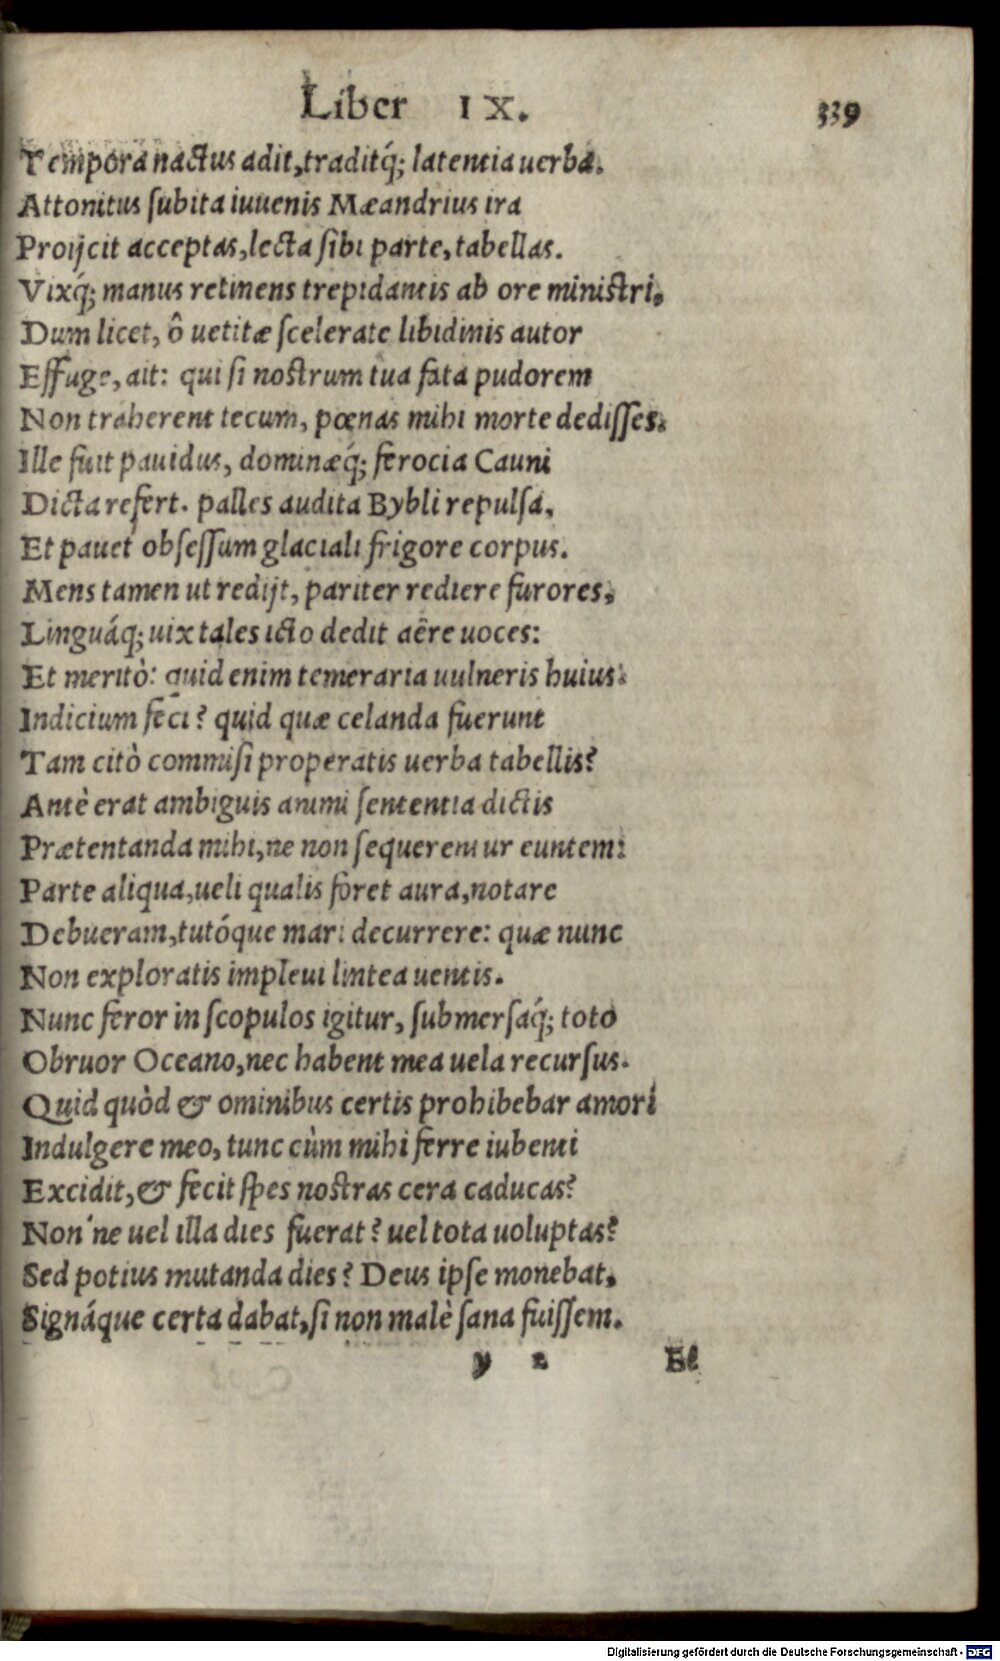 Liber IX. 339
Tempora nactus adit, traditq́; latentia uerba.
Attonitus ſubita iuuenis Mæandrius ira
Proijcit acceptas, lecta ſibi parte, tabellas.
Vixq́; manus retinens trepidantis ab ore miniſtri,
Dum licet, ô uetitæ ſcelerate libidinis autor
Effuge, ait: qui ſi noſtrum tua fata pudorem
Non traherent tecum, pœnas mihi morte dediſſes.
Ille fuit pauidus, dominæq́; ferocia Cauni
Dicta refert. palles audita Bybli repulſa,
Et pauet obſeſſum glaciali frigore corpus.
Mens tamen ut redijt, pariter rediere furores,
Linguáq; uix tales icto dedit aëre uoces:
Et meritò: quid enim temeraria uulneris huius
Indicium feci? quid quæ celanda fuerunt
Tam citò commiſi properatis uerba tabellis?
Antè erat ambiguis animi ſententia dictis
Prætentanda mihi, ne non ſequeretur euntem:
Parte aliqua, ueli qualis foret aura, notare
Debueram, tutóque mari decurrere: quæ nunc
Non exploratis impleui lintea uentis.
Nunc feror in ſcopulos igitur, ſubmerſaq́; toto
Obruor Oceano, nec habent mea uela recurſus.
Quid quòd & ominibus certis prohibebar amori
Indulgere meo, tunc cùm mihi ferre iubenti
Excidit, & fecit ſpes noſtras cera caducas?
Non'ne uel illa dies fuerat? uel tota uoluptas?
Sed potius mutanda dies? Deus ipſe monebat,
Signáque certa dabat, ſi non malè ſana fuiſſem.
y 2 Et
Digitalisierung gefördert durch die Deutsche Forschungsgemeinschaft - DFG